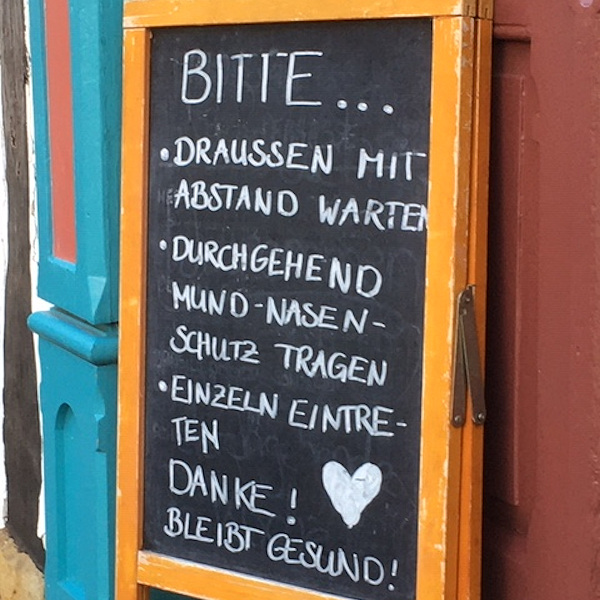 BITTE...
• DRAUSSEN MIT
ABSTAND WARTEN
• DURCHGEHEND
MUND-NASEN-
SCHUTZ TRAGEN
• EINZELN EINTRE-
TEN
DANKE!
BLEIBT GESUND!